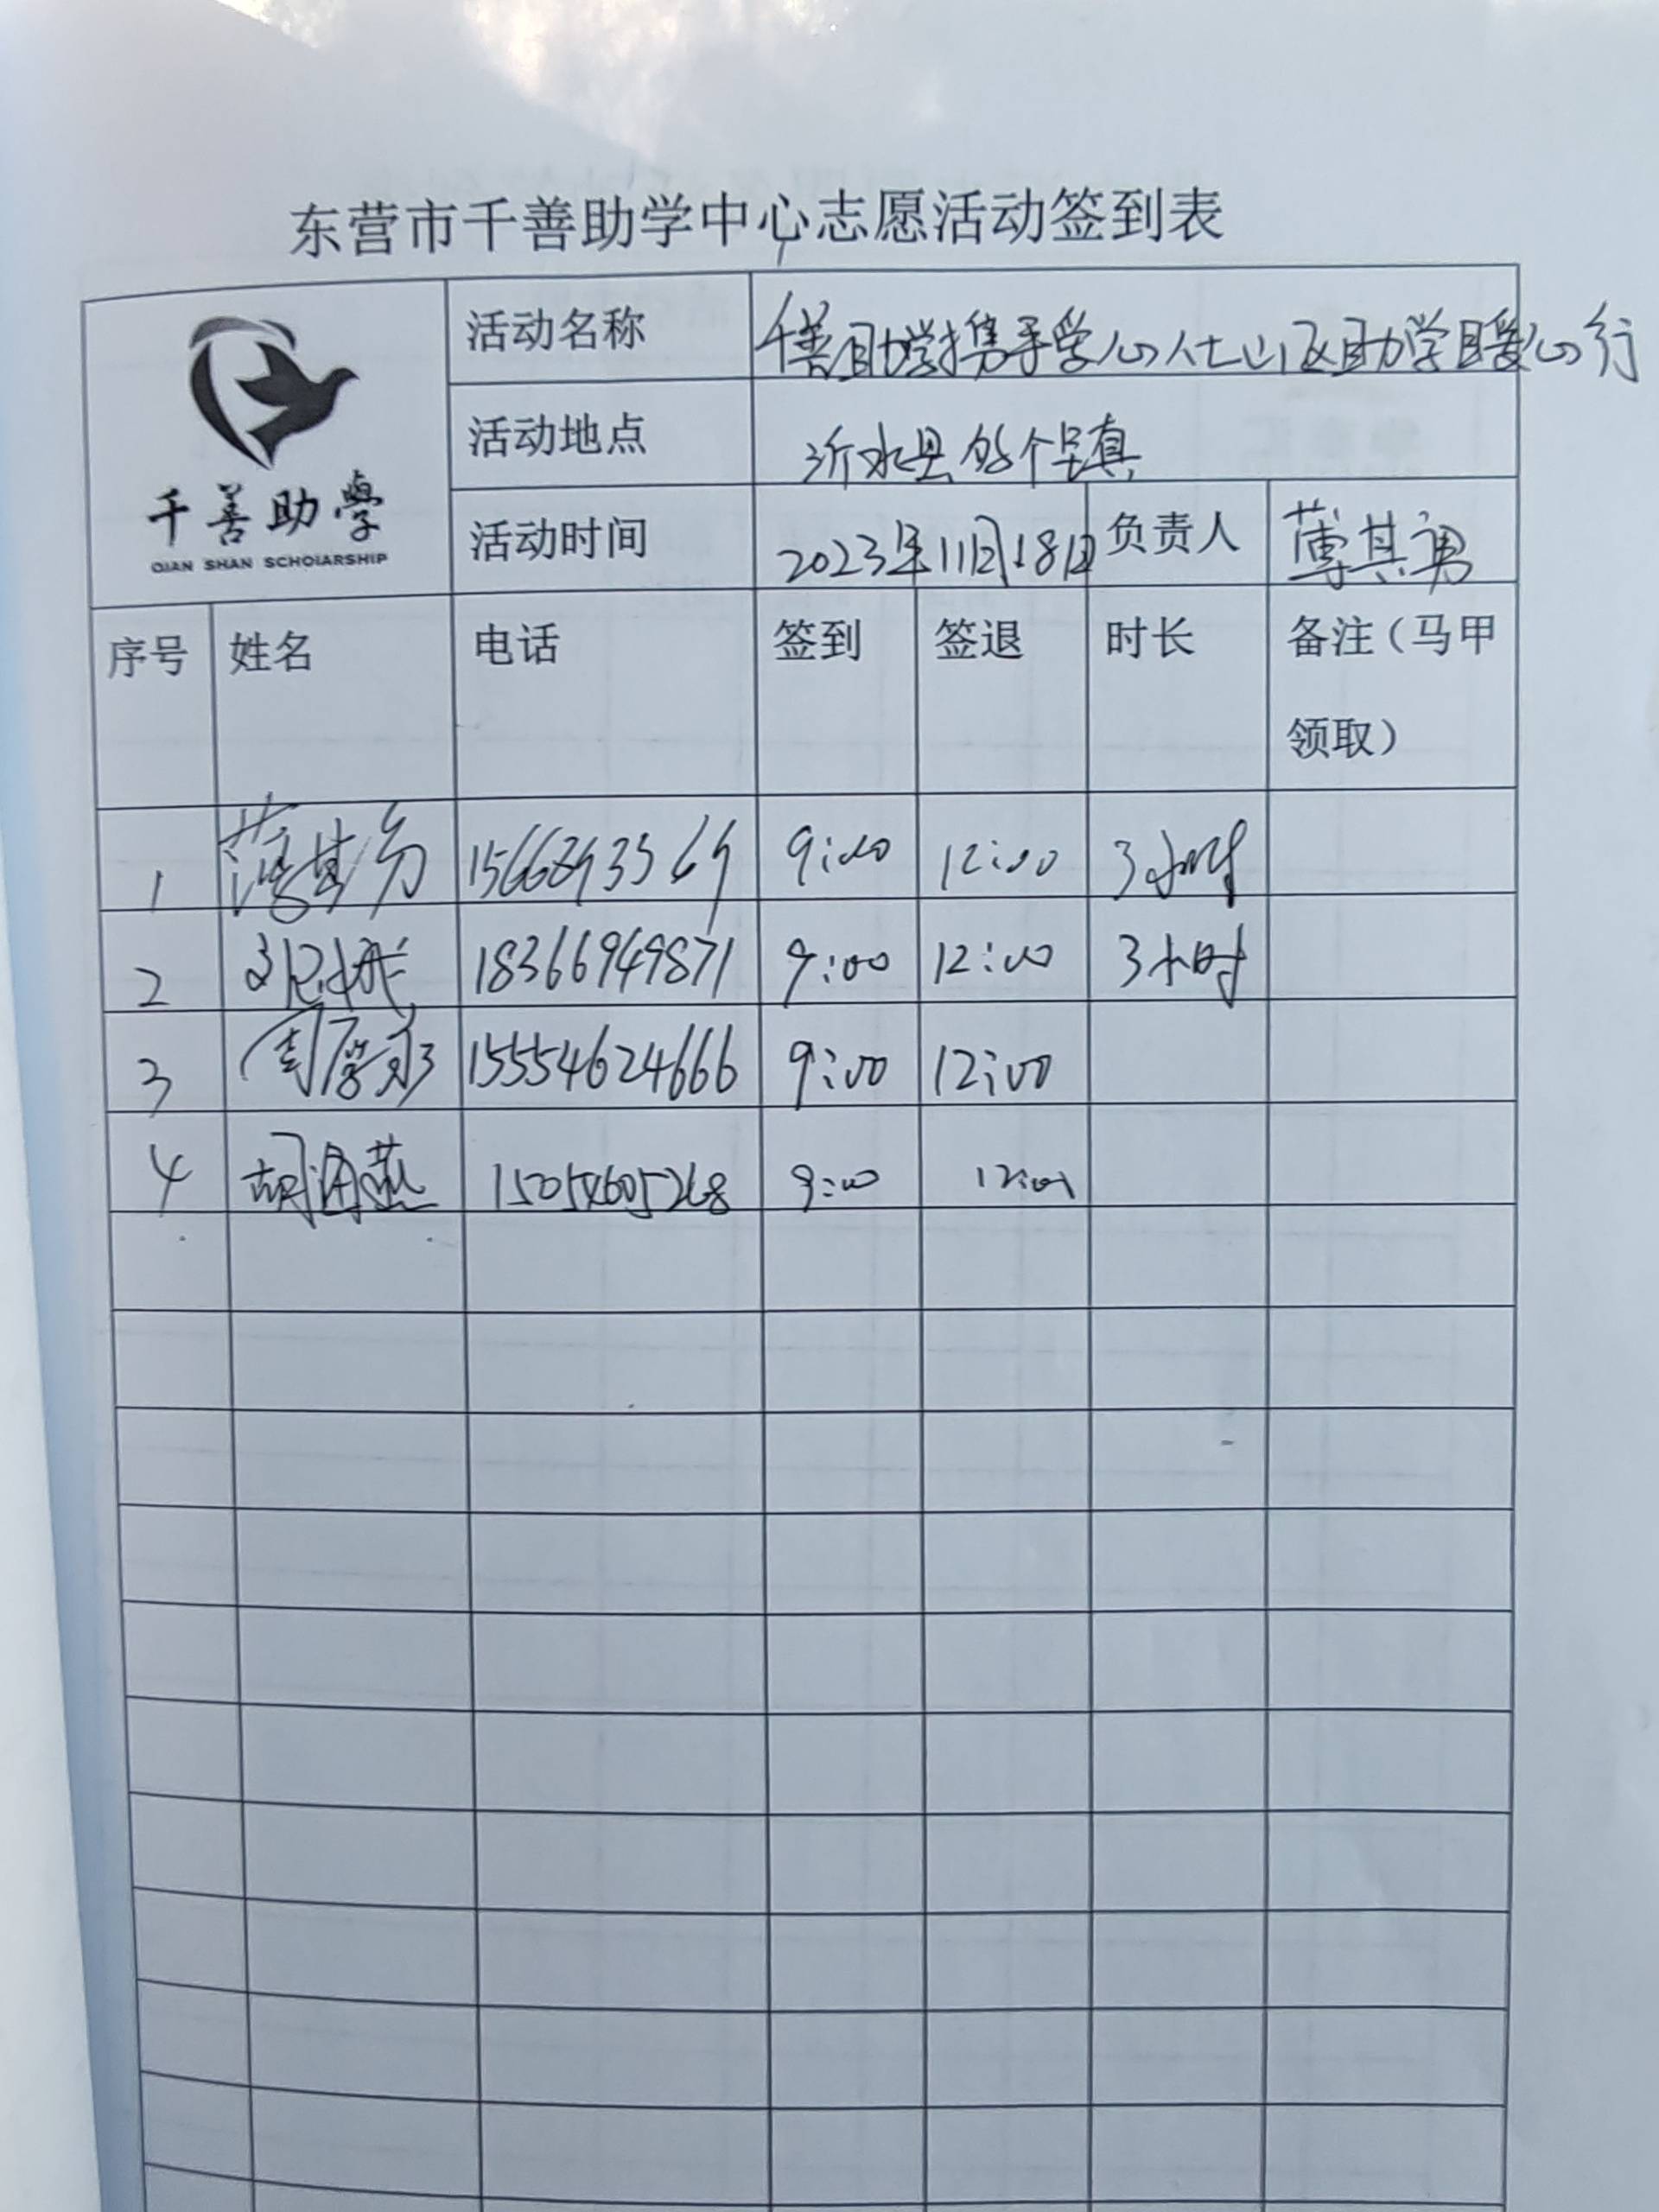 东营市千善助学中心志愿活动签到表
千善助学
QIAN SHAN SCHOLARSHIP
活动名称 千善助学携手爱心人士山区助学暖心行
活动地点 沂水县 个乡镇
活动时间 2023年11月18日 负责人 薄其勇
序号 姓名 电话 签到 签退 时长 备注（马甲
领取）
1 9:00 12:00 3小时
2 18366949871 9:00 12:00 3小时
3 15554624666 9:00 12:00
4 胡海燕 15054605268 9:00 12:00